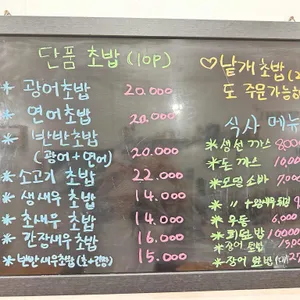 단품 초밥 (10P)
* 광어초밥 20.000
* 연어초밥 20.000
* 반반초밥
(광어+연어) 20.000
* 소고기 초밥 22.000
* 생새우 초밥 14.000
* 초새우 초밥 14.000
* 간장새우 초밥 16.000
* 반반새우초밥(초+간장) 15.000
♡낱개초밥
도 주문가능
식사 메뉴
* 생선까스
* 돈까스
* 모밀소바
* 우동 6,000
* 회덮밥
* 장어 덮밥